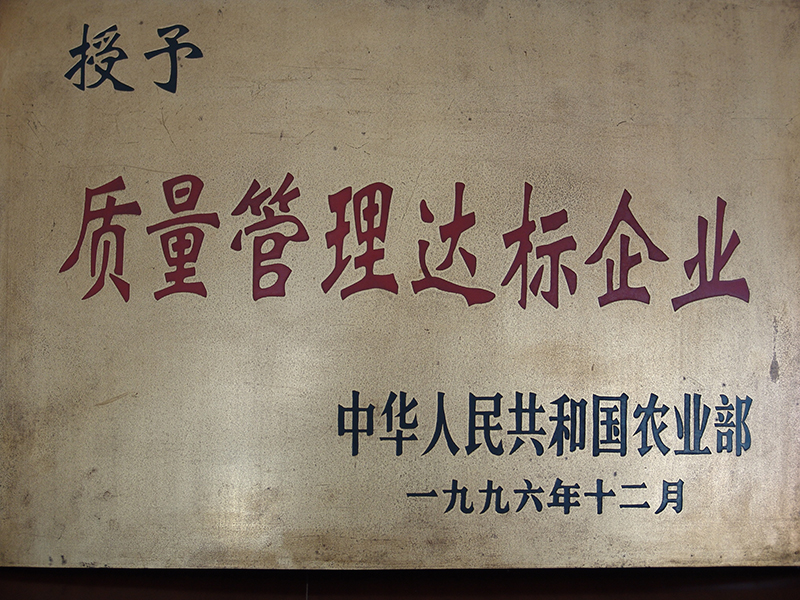 授予
质量管理达标企业
中华人民共和国农业部
一九九六年十二月